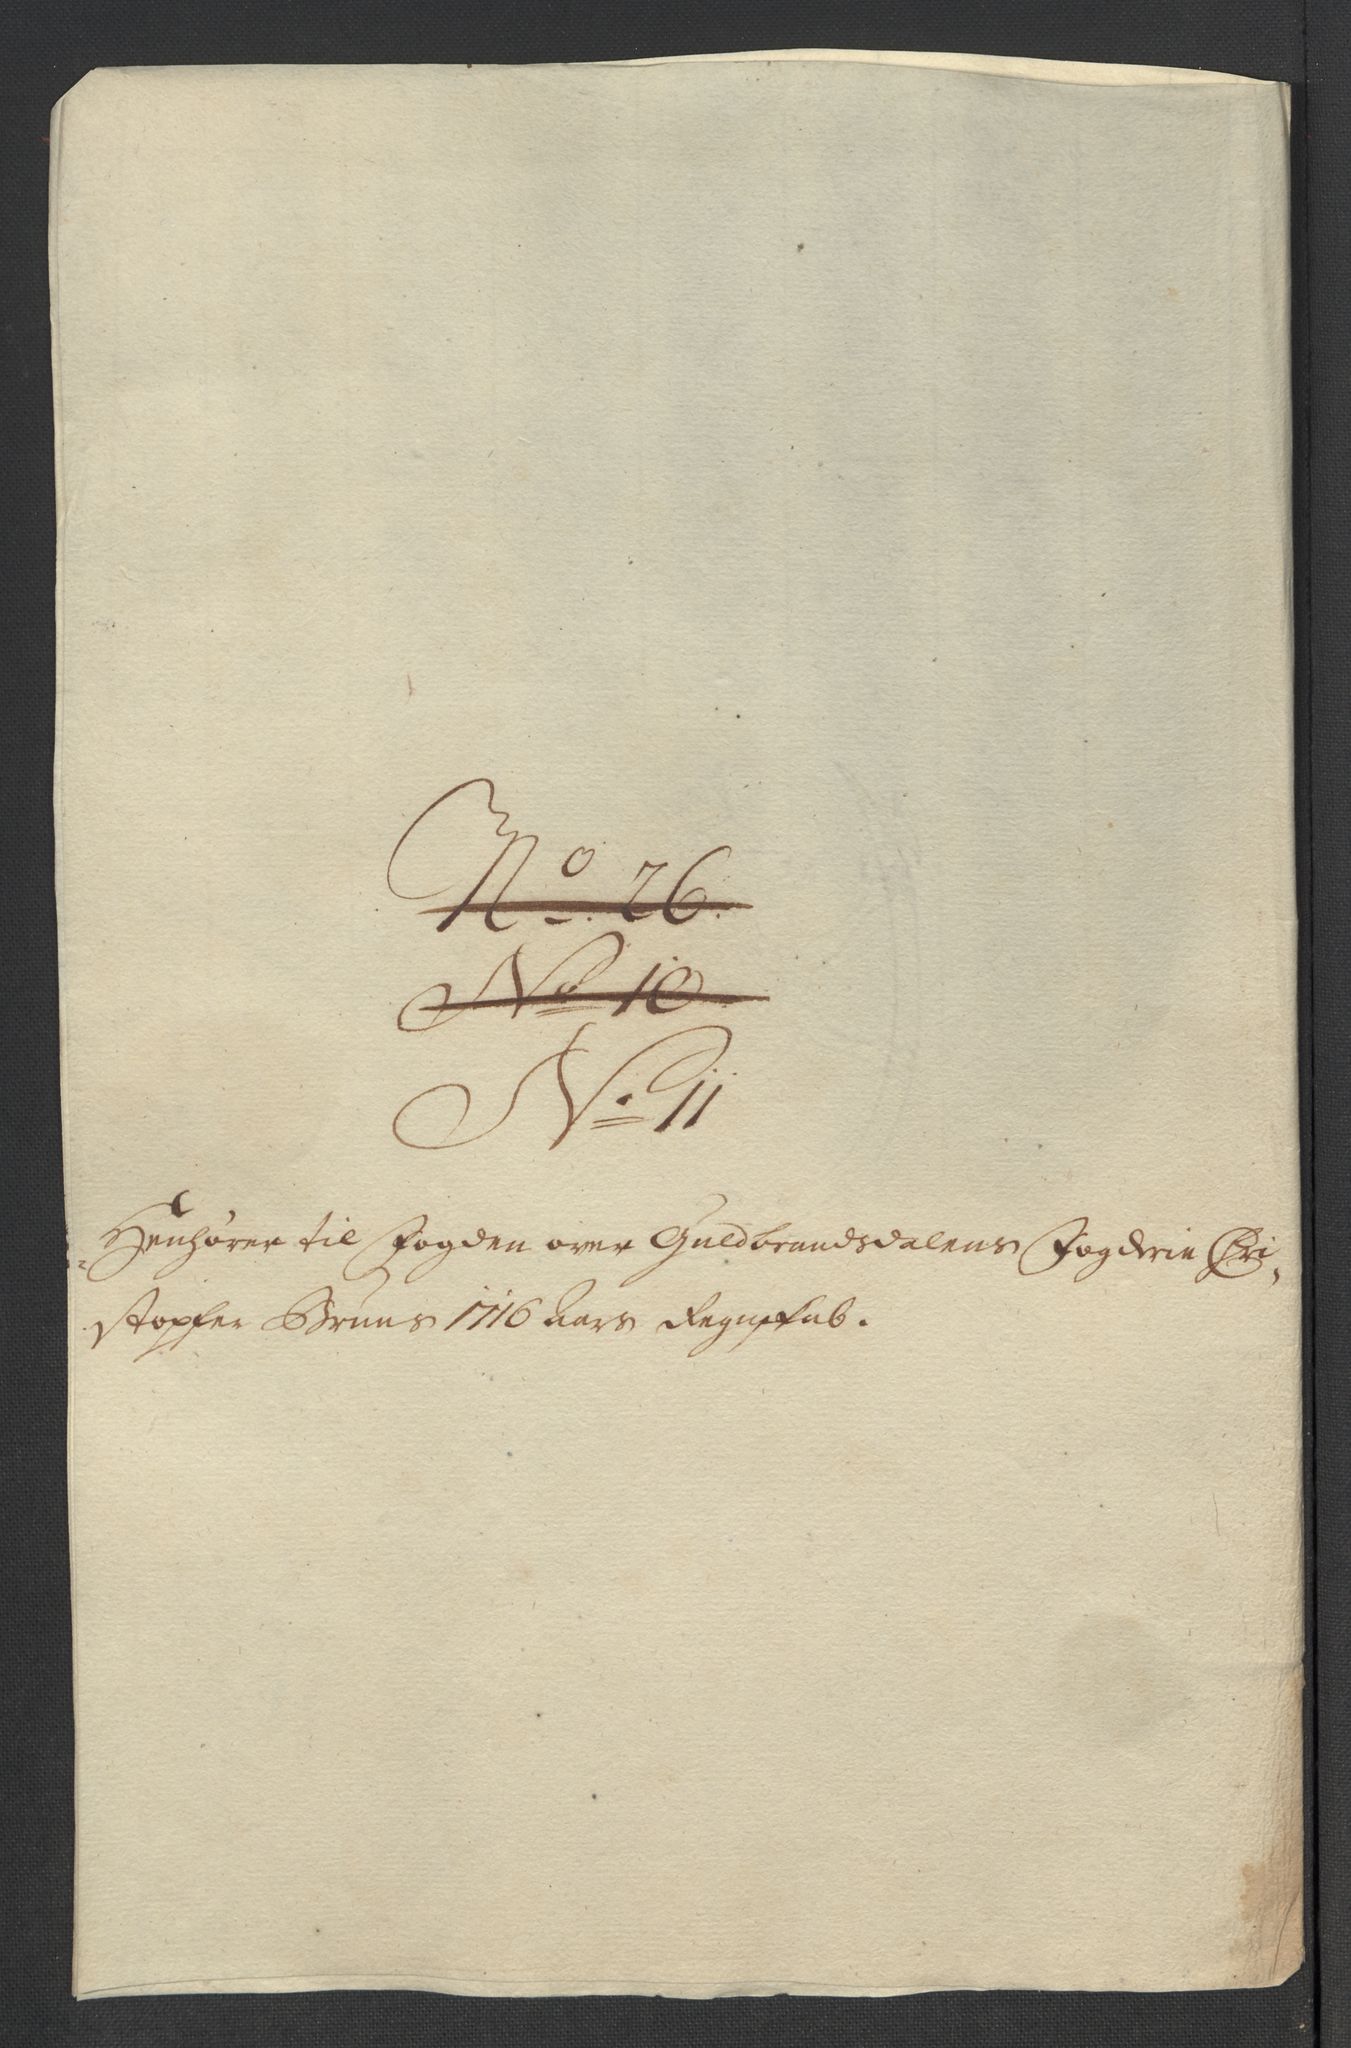 No. 26.
No 10
No 11
Henhører til Fogden over Guldbrandsdalens Fogderie Chri-
stopher Bruuns 1716 Aars Regnskab.